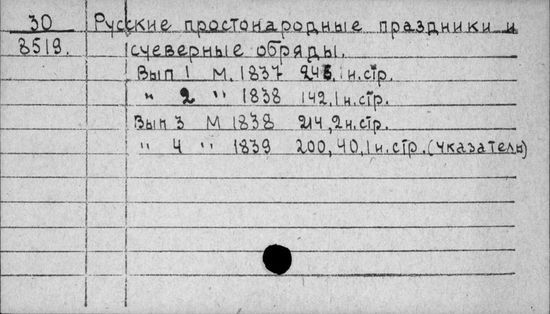 30 Русские простонародные праздники и
8519. суеверные обряды.
Вып 1 М. 1837 246, 1 н. стр.
" 2 " 1838 142, 1 н. стр.
Вып 3 М 1838 214, 2 н. стр.
" 4 " 1839 200, 40, 1 н. стр. (указатель)